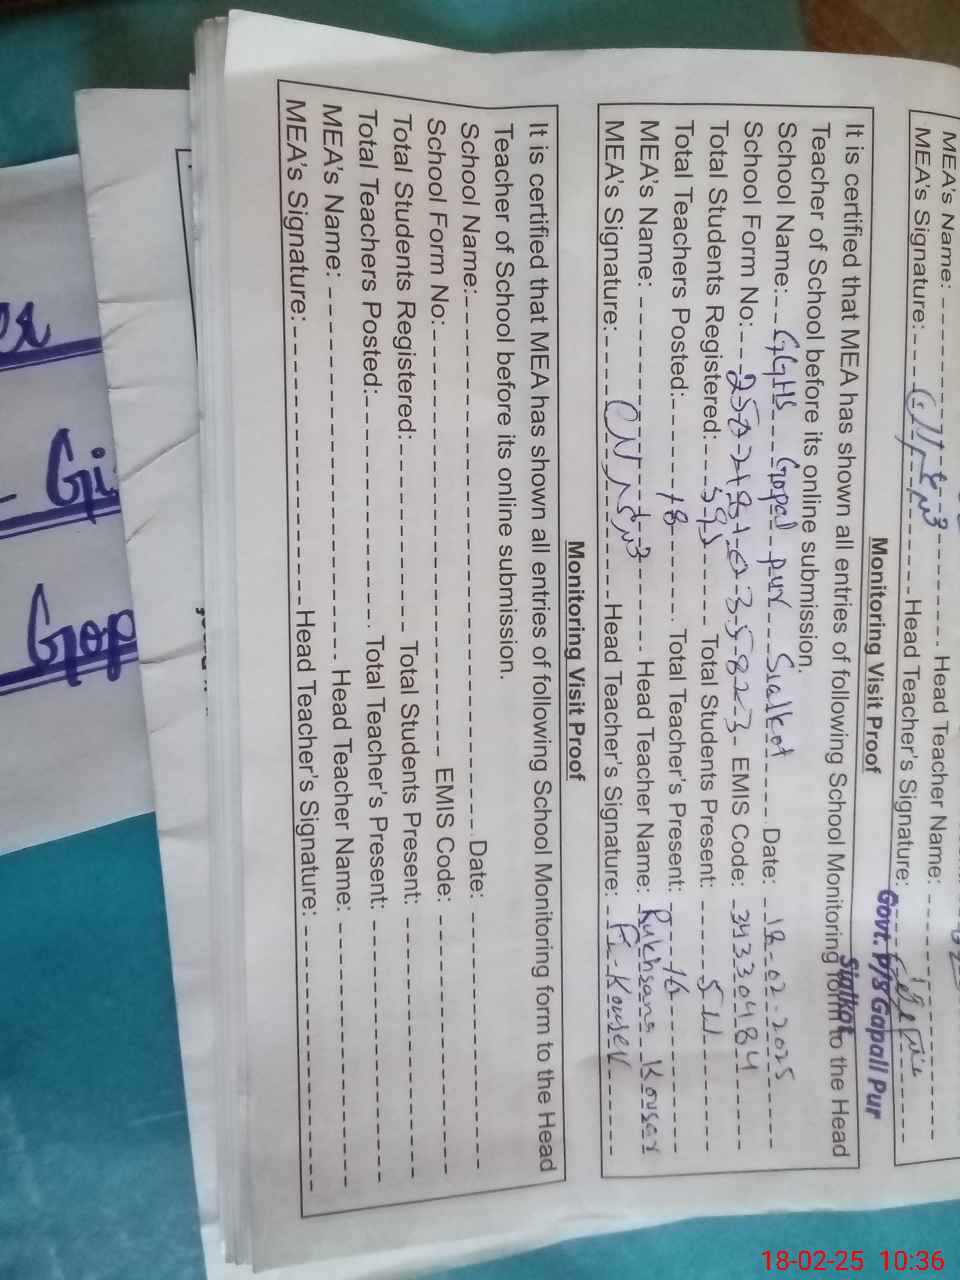 MEA's Name:
Head Teacher Name:
MEA's Signature:
Head Teacher's Signature:
Govt. P/S Gopali Pur
Sialkot
Monitoring Visit Proof
It is certified that MEA has shown all entries of following School Monitoring form to the Head
Teacher of School before its online submission.
School Name: GGHS Gopal pur Sialkot Date: 18-02-2025
School Form No: EMIS Code: 34330484
Total Students Registered: Total Students Present:
Total Teachers Posted: 18 Total Teacher's Present: 16
MEA's Name: Head Teacher Name: Rukhsana Kousar
MEA's Signature: Head Teacher's Signature: R. Kouser
Monitoring Visit Proof
It is certified that MEA has shown all entries of following School Monitoring form to the Head
Teacher of School before its online submission.
School Name: Date:
School Form No: EMIS Code:
Total Students Registered: Total Students Present:
Total Teachers Posted: Total Teacher's Present:
MEA's Name: Head Teacher Name:
MEA's Signature: Head Teacher's Signature:
Gi
Gop
18-02-25 10:36